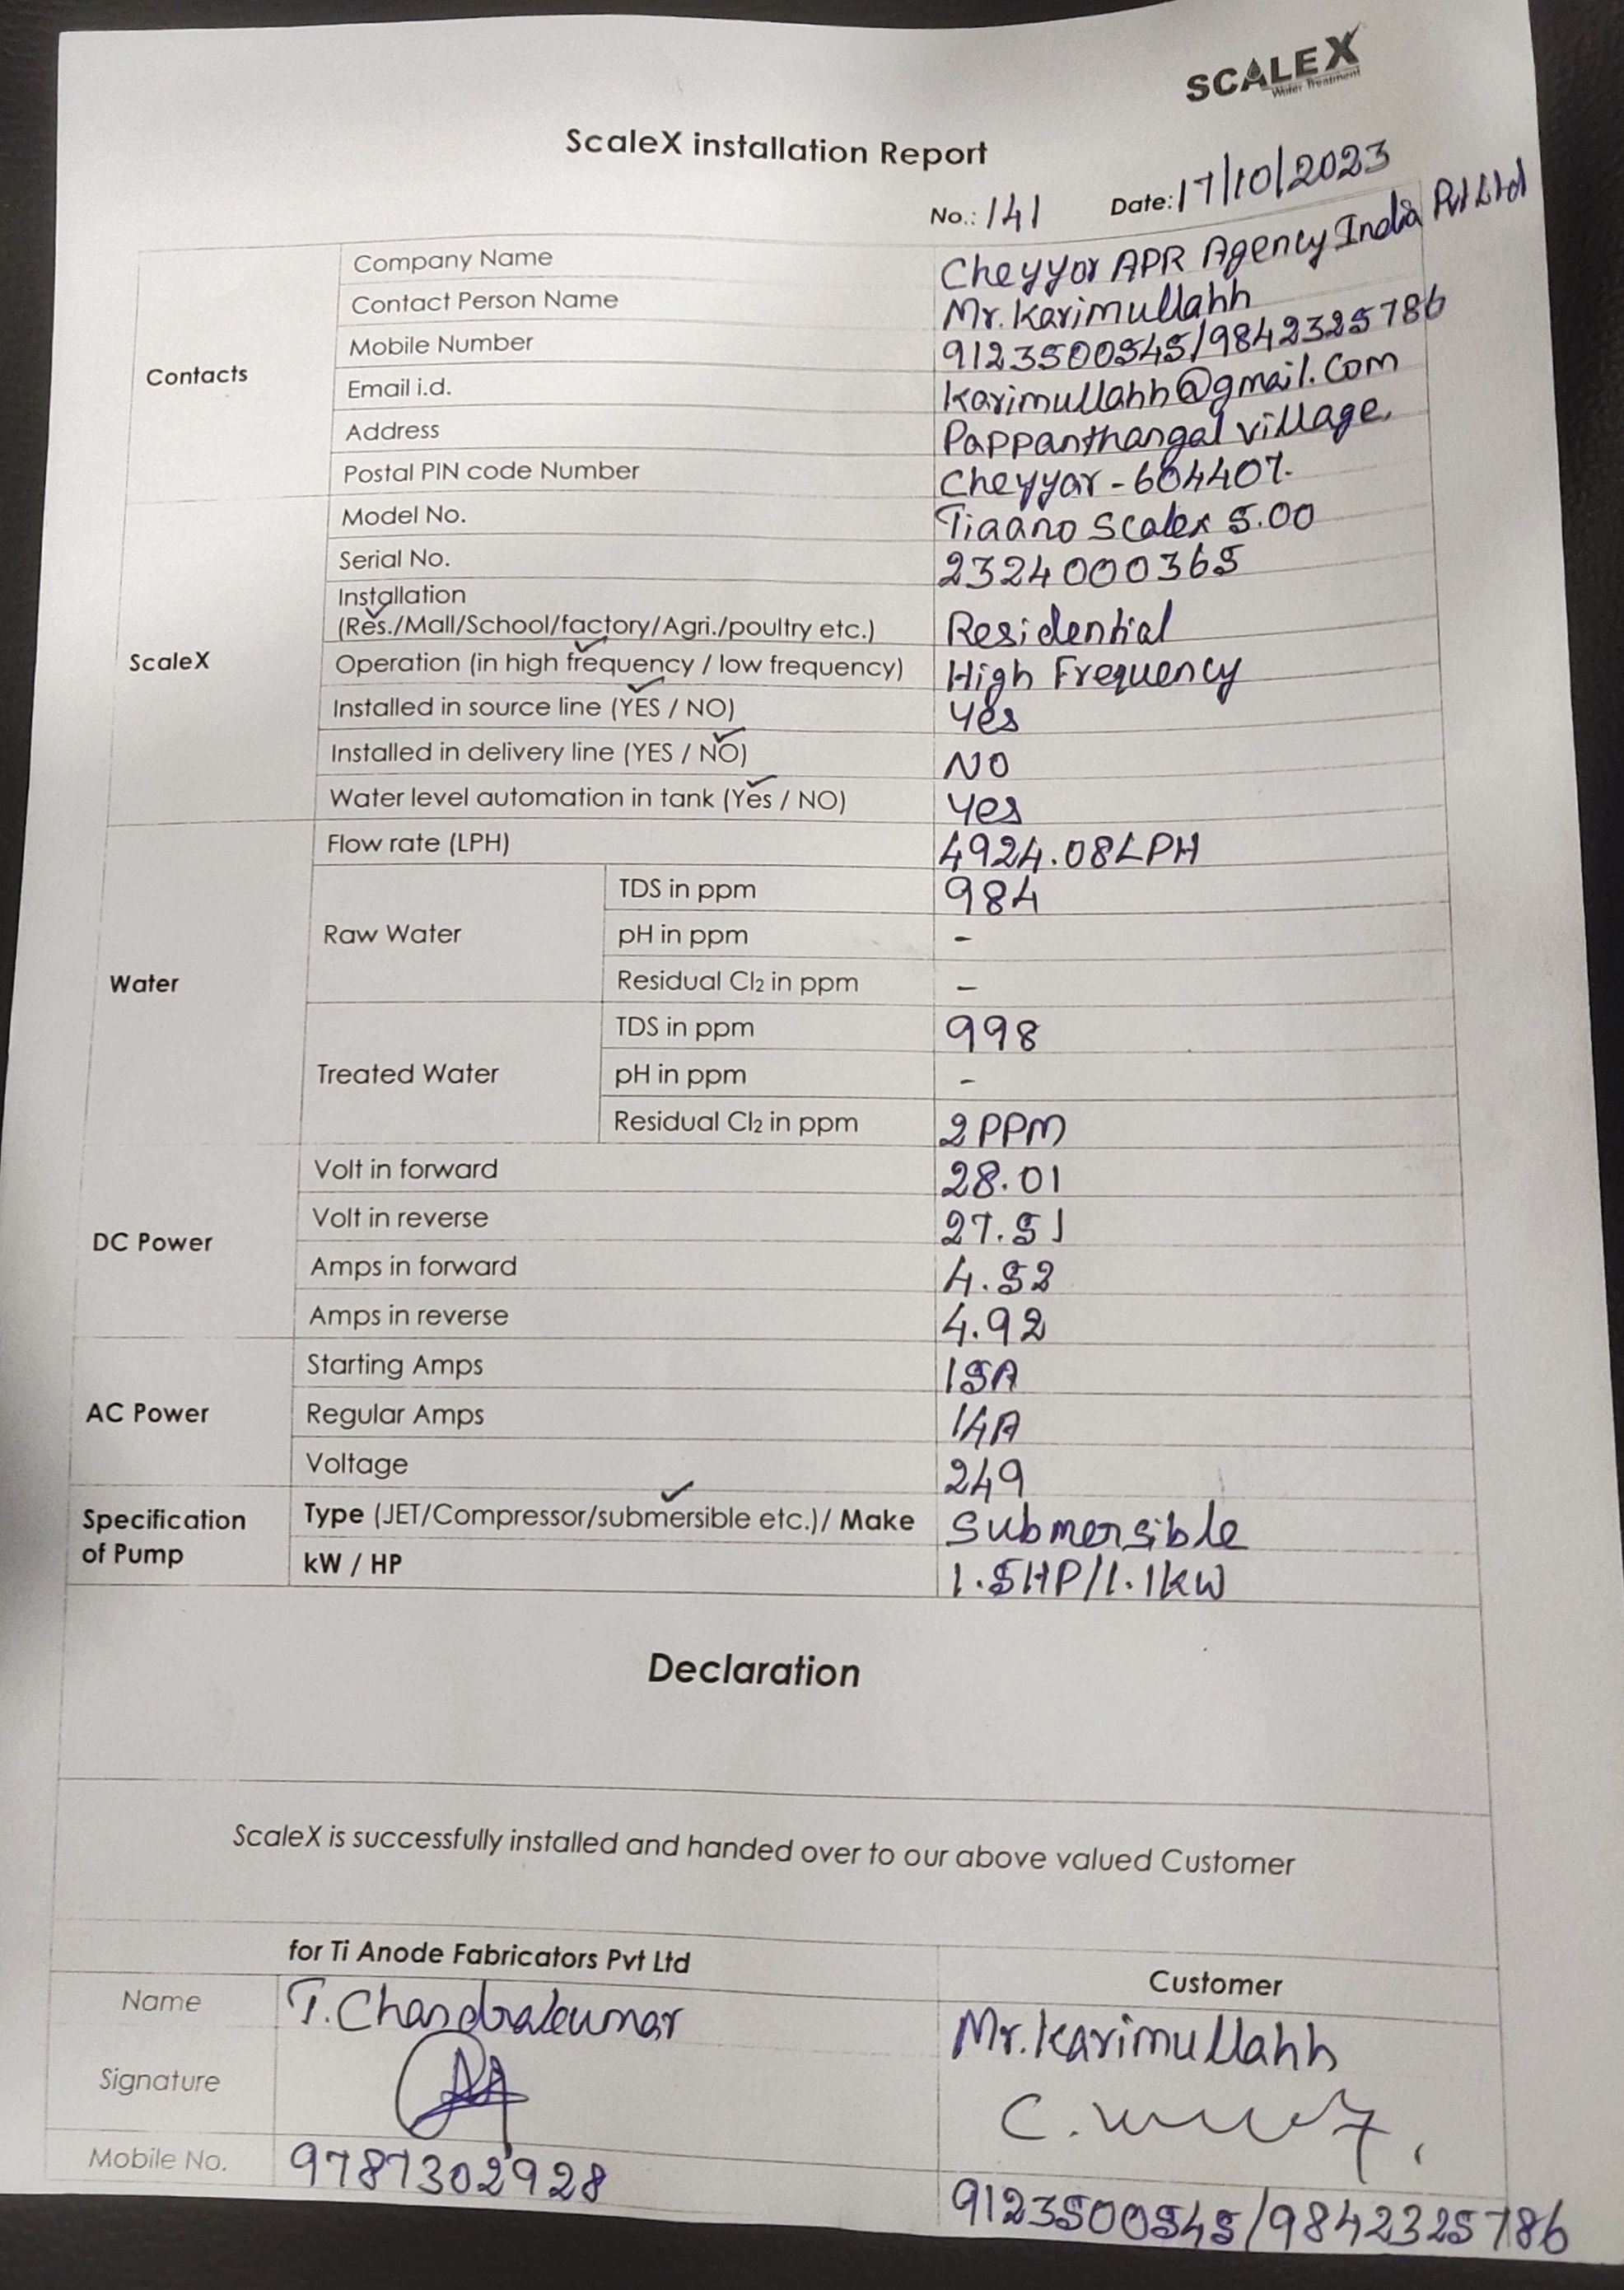 SCALEX
Water Treatment
ScaleX installation Report
No.: 141 Date: 17/10/2023
Contacts
Company Name Cheyyor APR Agency India Pvt Ltd
Contact Person Name Mr. Karimullahh
Mobile Number 9123500545/9842325786
Email i.d. karimullahh@gmail.com
Address Pappanthangal village,
Postal PIN code Number Cheyyar - 604407.
ScaleX
Model No. Tiaano Scalex 5.00
Serial No. 2324000365
Installation
(Res./Mall/School/factory/Agri./poultry etc.) Residential
Operation (in high frequency / low frequency) High Frequency
Installed in source line (YES / NO) Yes
Installed in delivery line (YES / NO) NO
Water level automation in tank (Yes / NO) Yes
Water
Flow rate (LPH) 4924.08LPH
Raw Water
TDS in ppm 984
pH in ppm -
Residual Cl2 in ppm -
Treated Water
TDS in ppm 998
pH in ppm -
Residual Cl2 in ppm 2 PPM
DC Power
Volt in forward 28.01
Volt in reverse 27.51
Amps in forward 4.52
Amps in reverse 4.92
AC Power
Starting Amps 15A
Regular Amps 14A
Voltage 249
Specification
of Pump
Type (JET/Compressor/submersible etc.)/ Make Submersible
kW / HP 1.5HP/1.1kW
Declaration
ScaleX is successfully installed and handed over to our above valued Customer
for Ti Anode Fabricators Pvt Ltd Customer
Name T. Chandrakumar Mr. Karimullahh
Signature
Mobile No. 9787302928 9123500545/9842325786